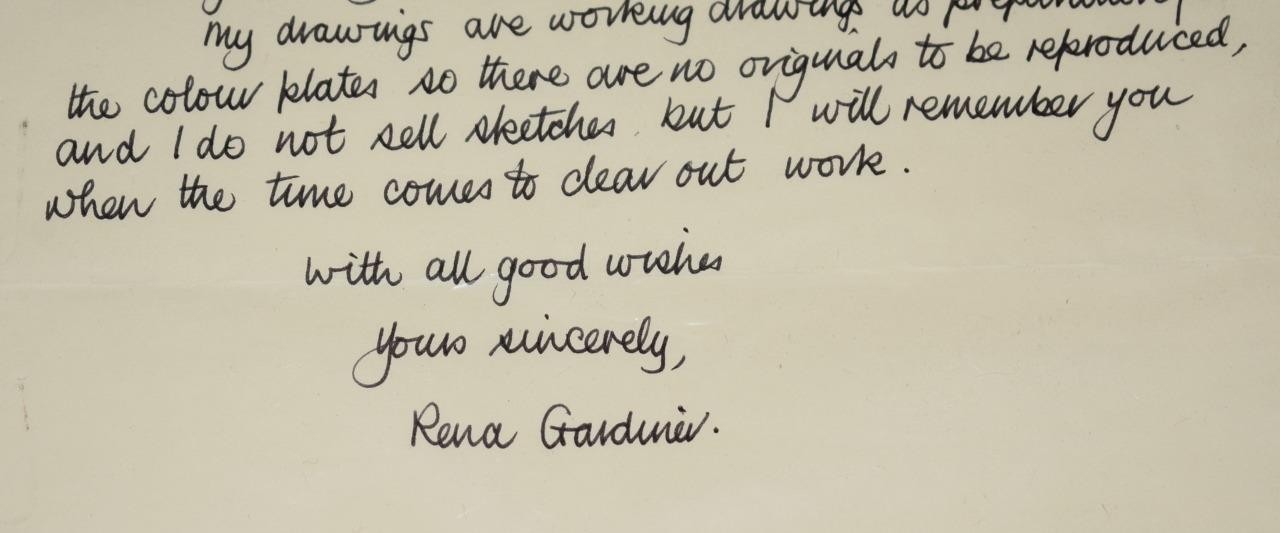 my drawings are working drawings as
the colour plates so there are no originals to be reproduced,
and I do not sell sketches but I will remember you
when the time comes to clear out work.
with all good wishes
yours sincerely,
Rena Gardiner.